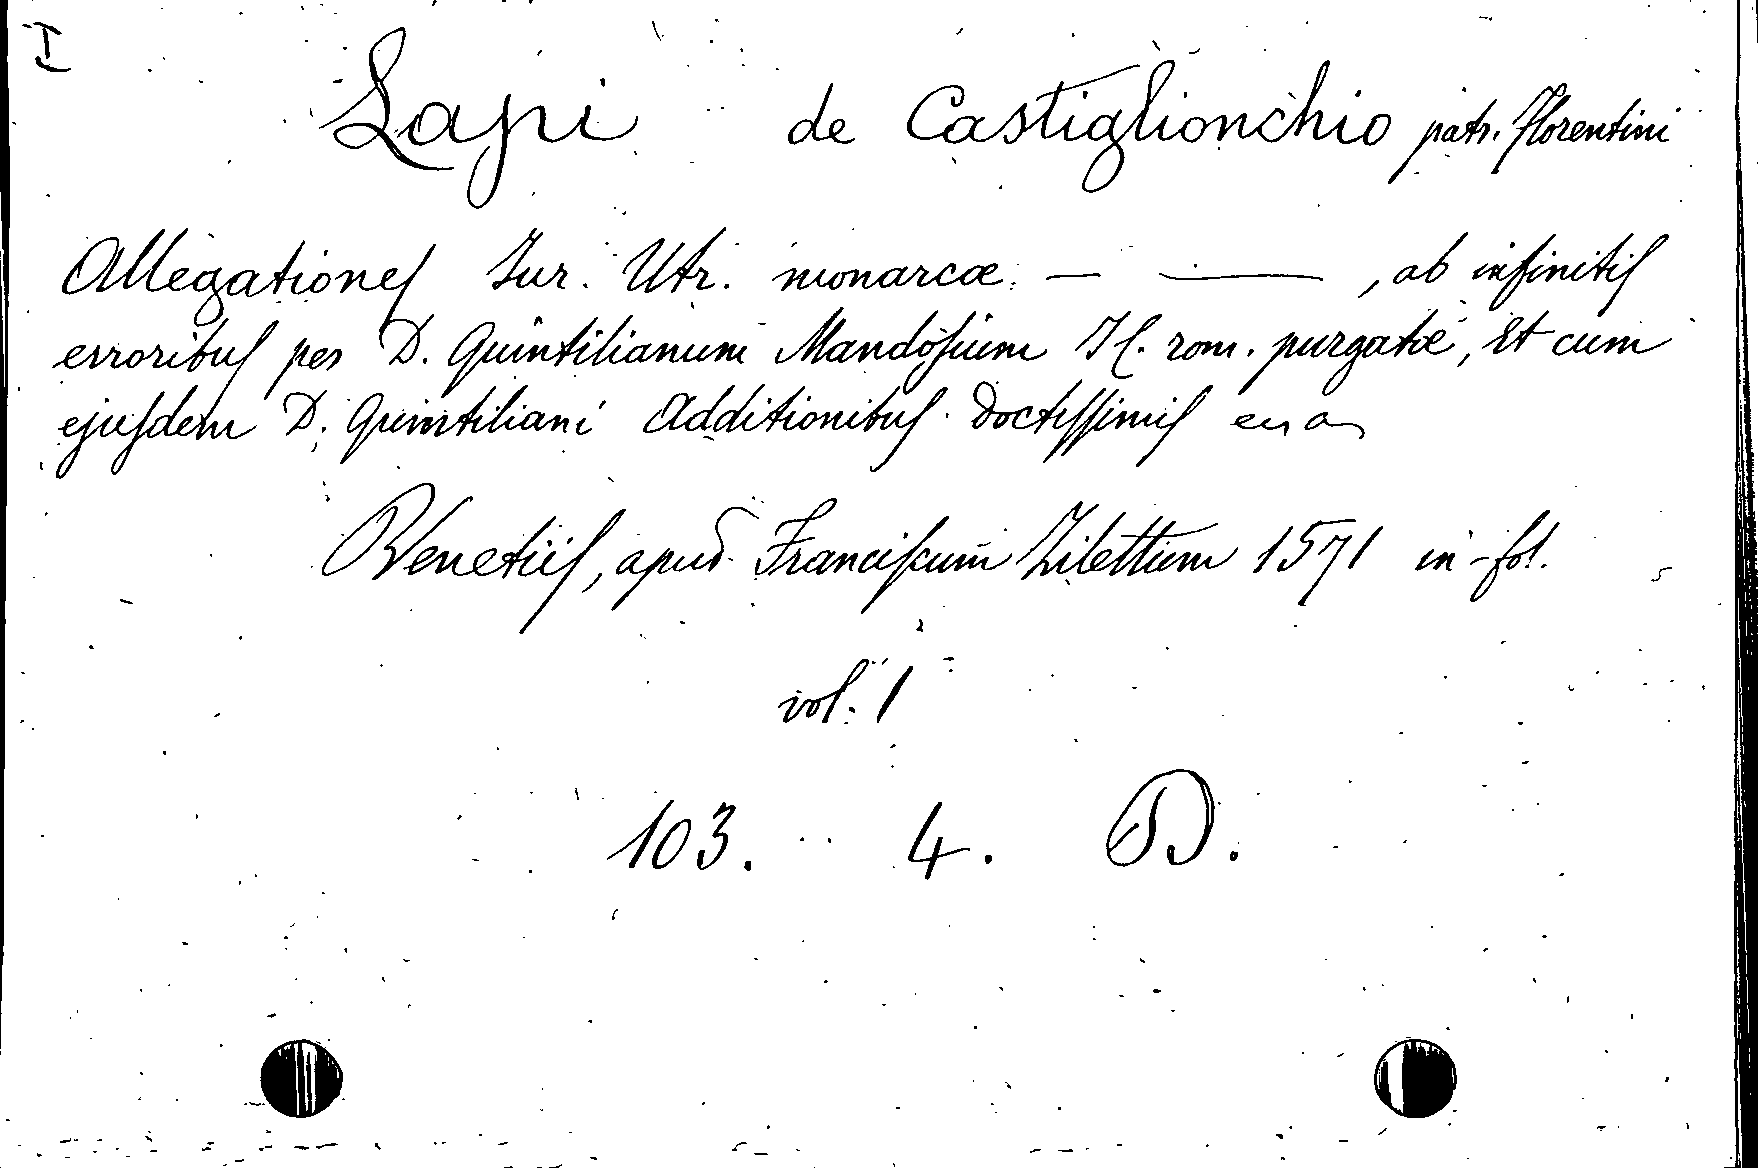 I
Lapi de Castiglionchio patr. florentini
Allegationes Jur. Utr. monarcæ. — ——, ab infinitis
erroribus per D. Quintilianum Mandosium JC. rom. purgatæ, et cum
ejusdem D. Quintiliani Additionibus doctissimis
Venetiis, apud Franciscum Zilettum 1571 in-fol.
vol. 1
103. 4. D.